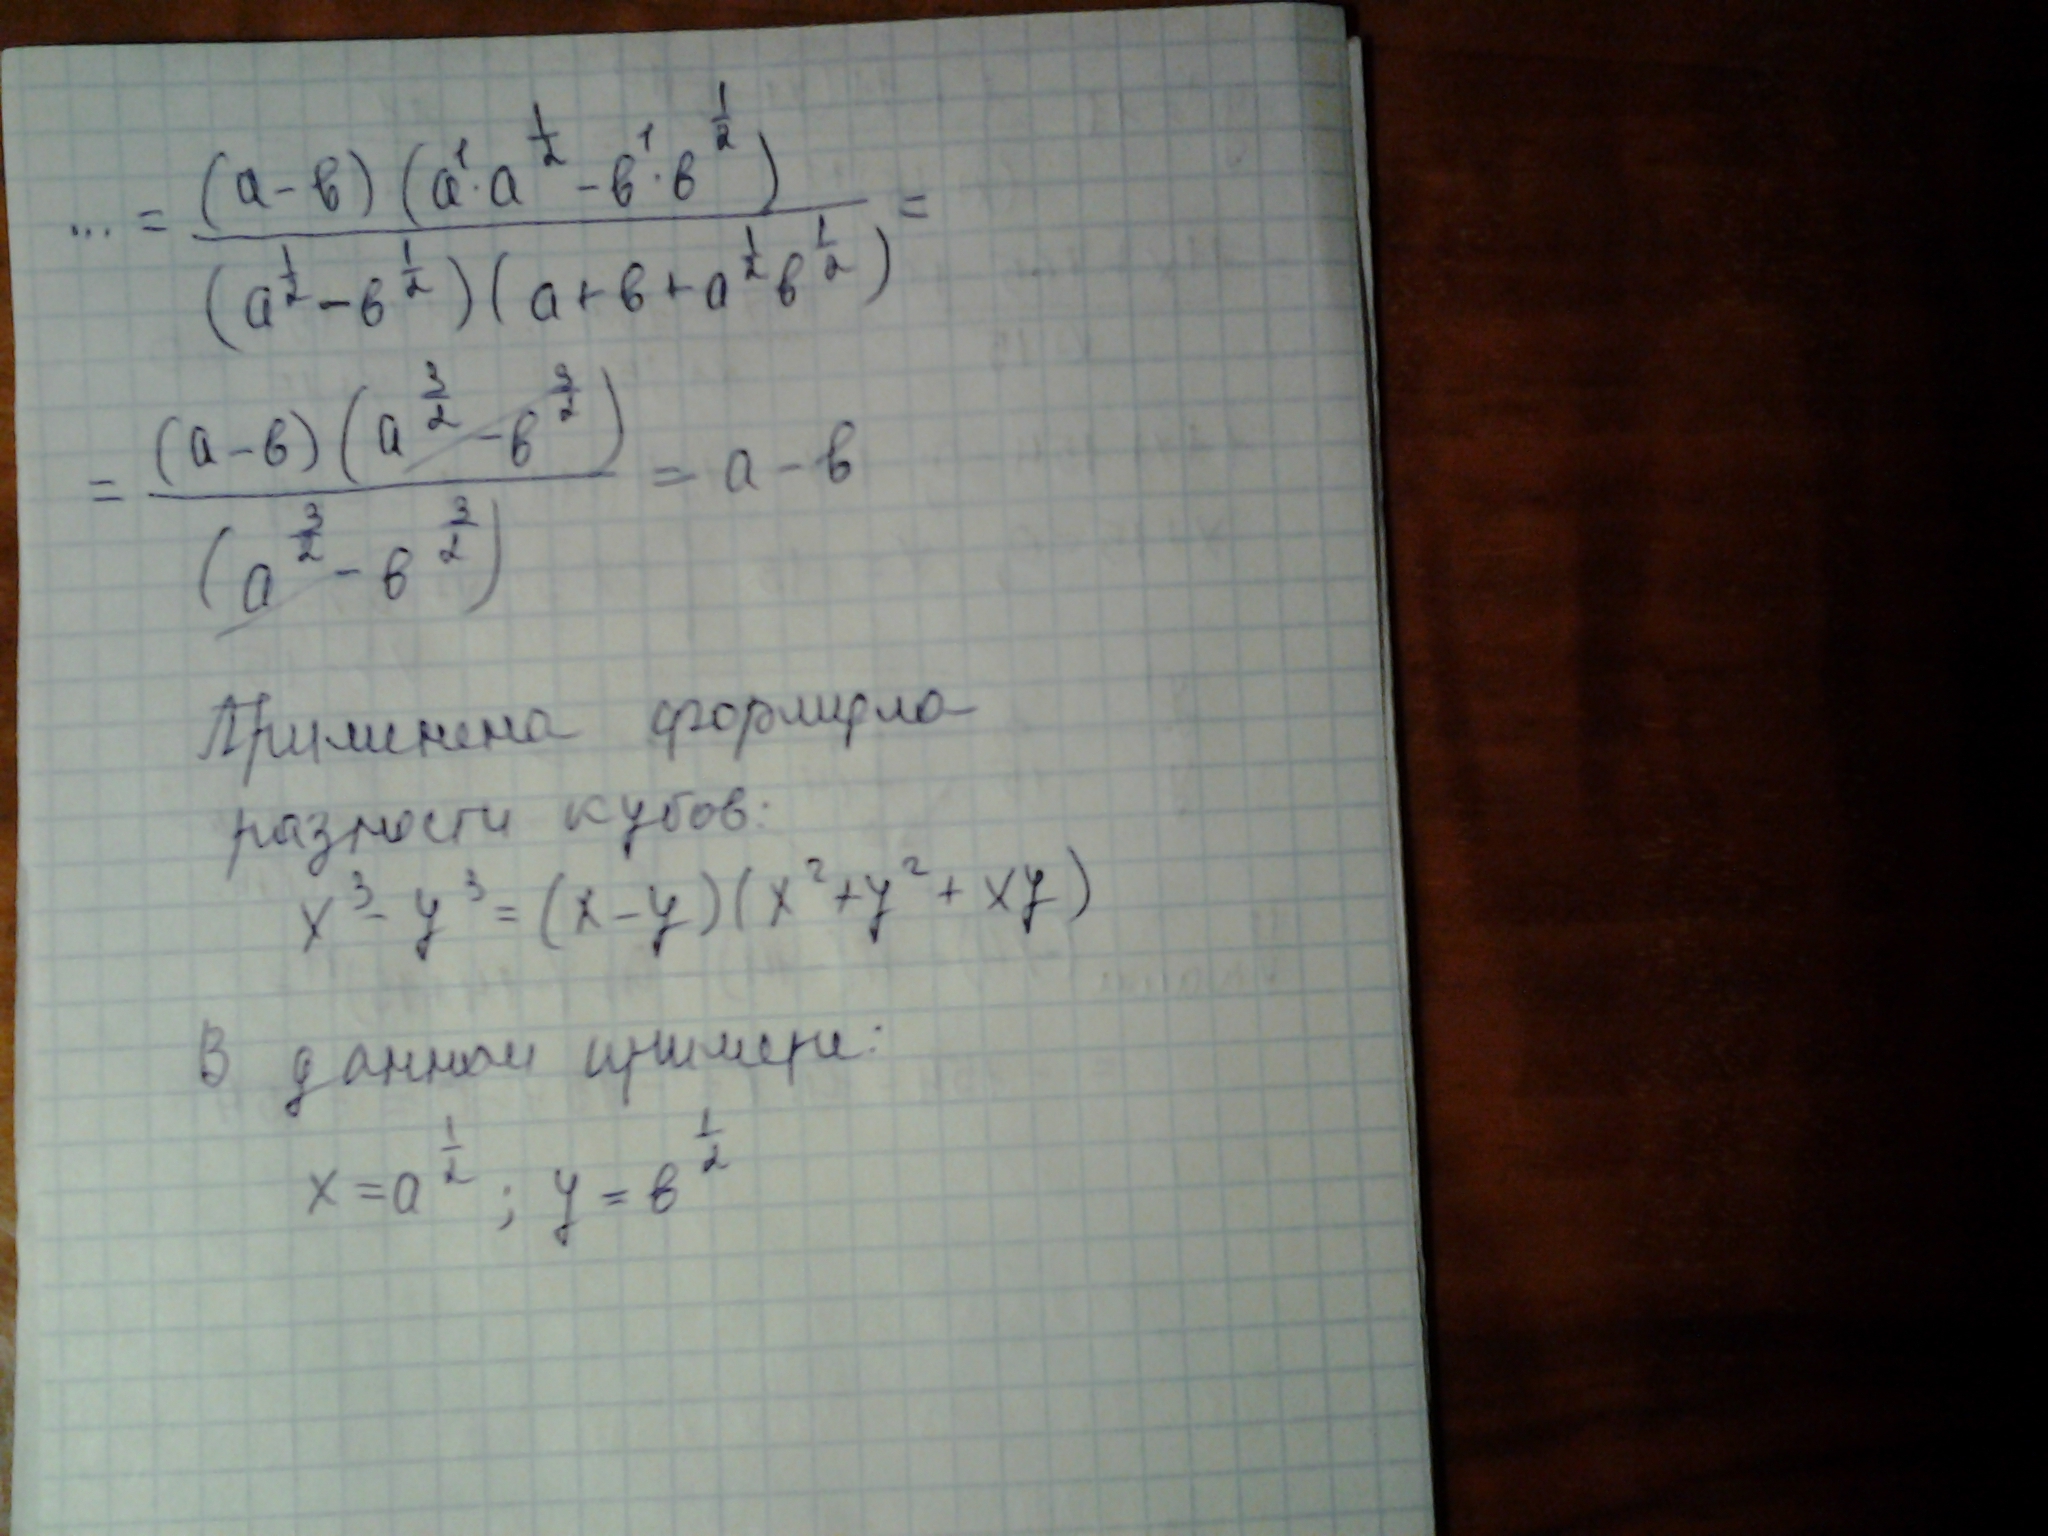 ... = \frac{(a-в)(a^1·a^{\frac{1}{2}}-в^1·в^{\frac{1}{2}})}{(a^{\frac{1}{2}}-в^{\frac{1}{2}})(a+в+a^{\frac{1}{2}}в^{\frac{1}{2}})} =
= \frac{(a-в)(a^{\frac{3}{2}}-в^{\frac{3}{2}})}{(a^{\frac{3}{2}}-в^{\frac{3}{2}})} = a-в
Применена формула
разности кубов:
x³-y³=(x-y)(x²+y²+xy)
В данном примере:
x=a^{\frac{1}{2}}; y=в^{\frac{1}{2}}